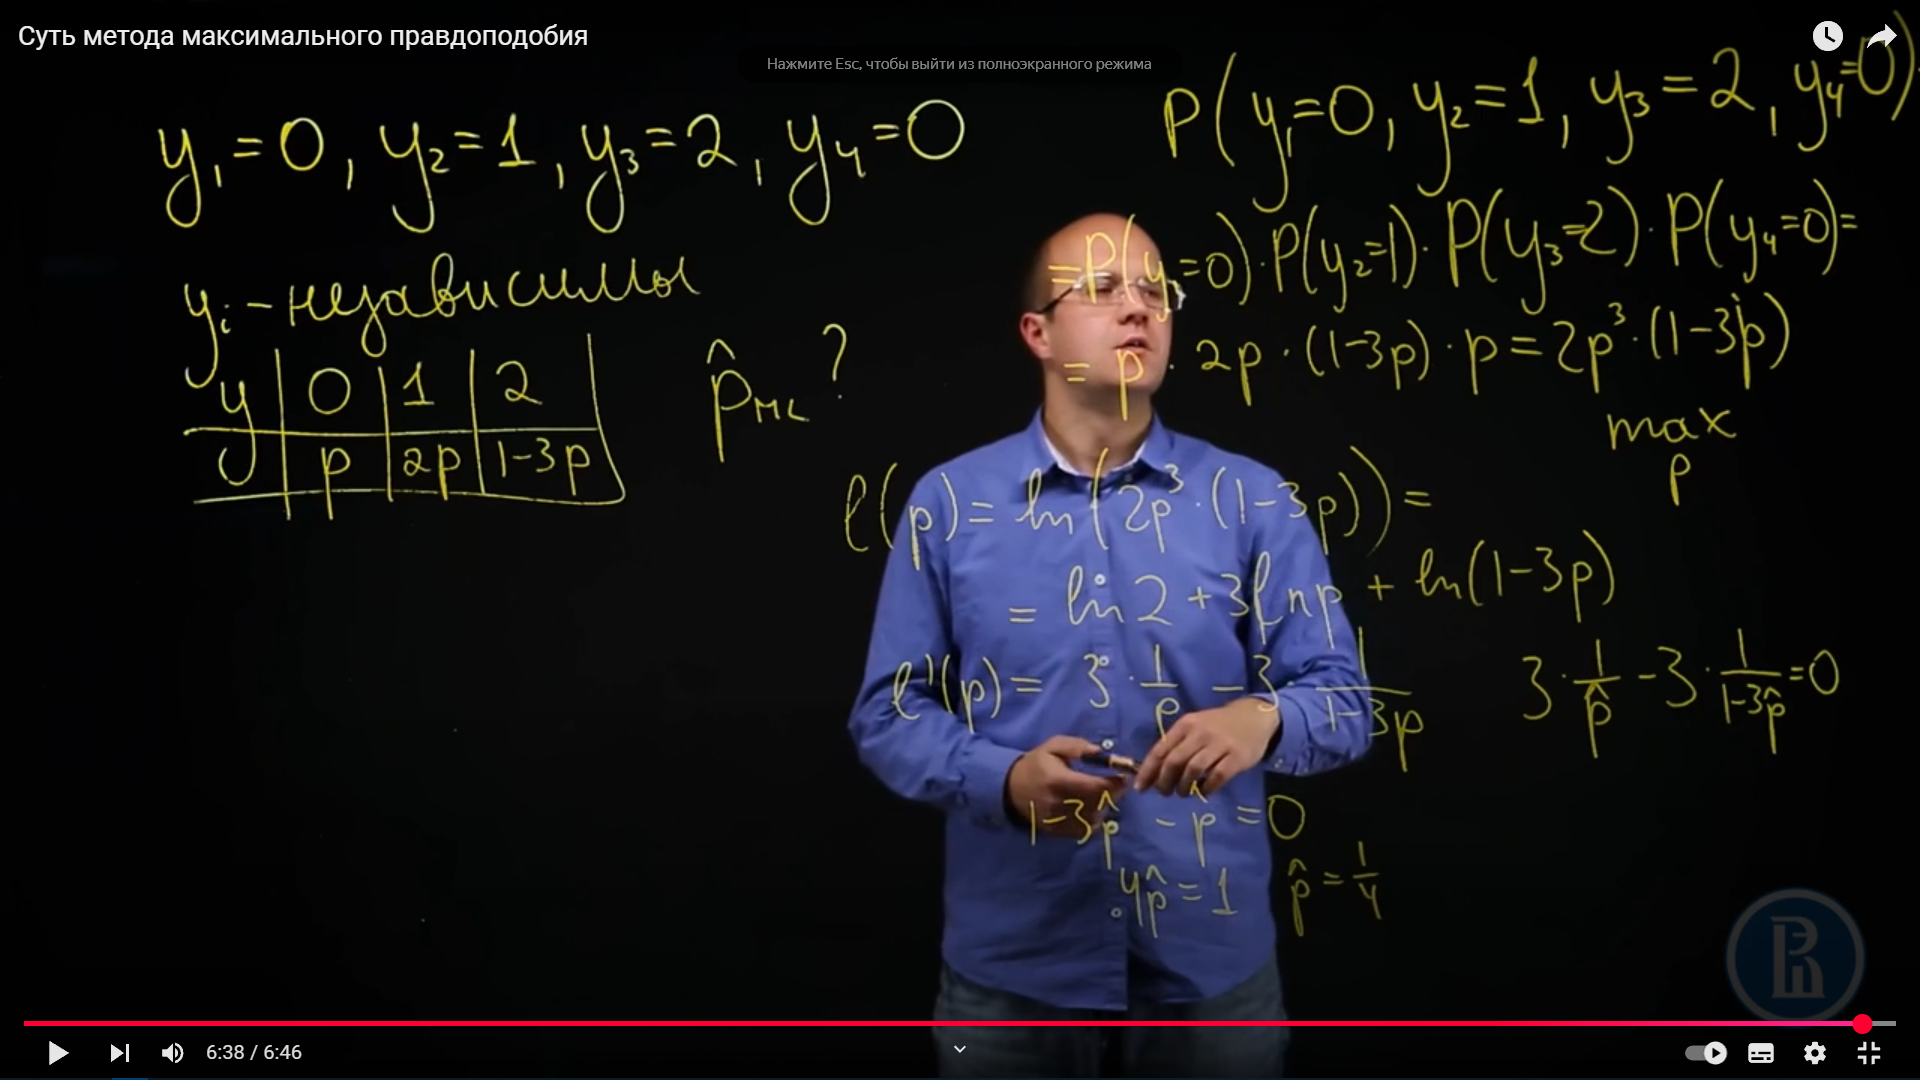 Суть метода максимального правдоподобия
Нажмите Esc, чтобы выйти из полноэкранного режима
y₁=0, y₂=1, y₃=2, y₄=0
yᵢ - независимы
y | 0 | 1 | 2
p | 2p | 1-3p
p̂ мс ?
P(y₁=0, y₂=1, y₃=2, y₄=0)
=P(y₁=0)·P(y₂=1)·P(y₃=2)·P(y₄=0)=
= p · 2p · (1-3p) · p = 2p³·(1-3p)
max
p
ℓ(p) = ln(2p³·(1-3p)) =
= ln 2 + 3 ln p + ln(1-3p)
ℓ'(p) = 3 · 1/p - 3 · 1/(1-3p)
3 · 1/p̂ - 3 · 1/(1-3p̂) = 0
1-3p̂ - p̂ = 0
4p̂ = 1 p̂ = 1/4
6:38 / 6:46